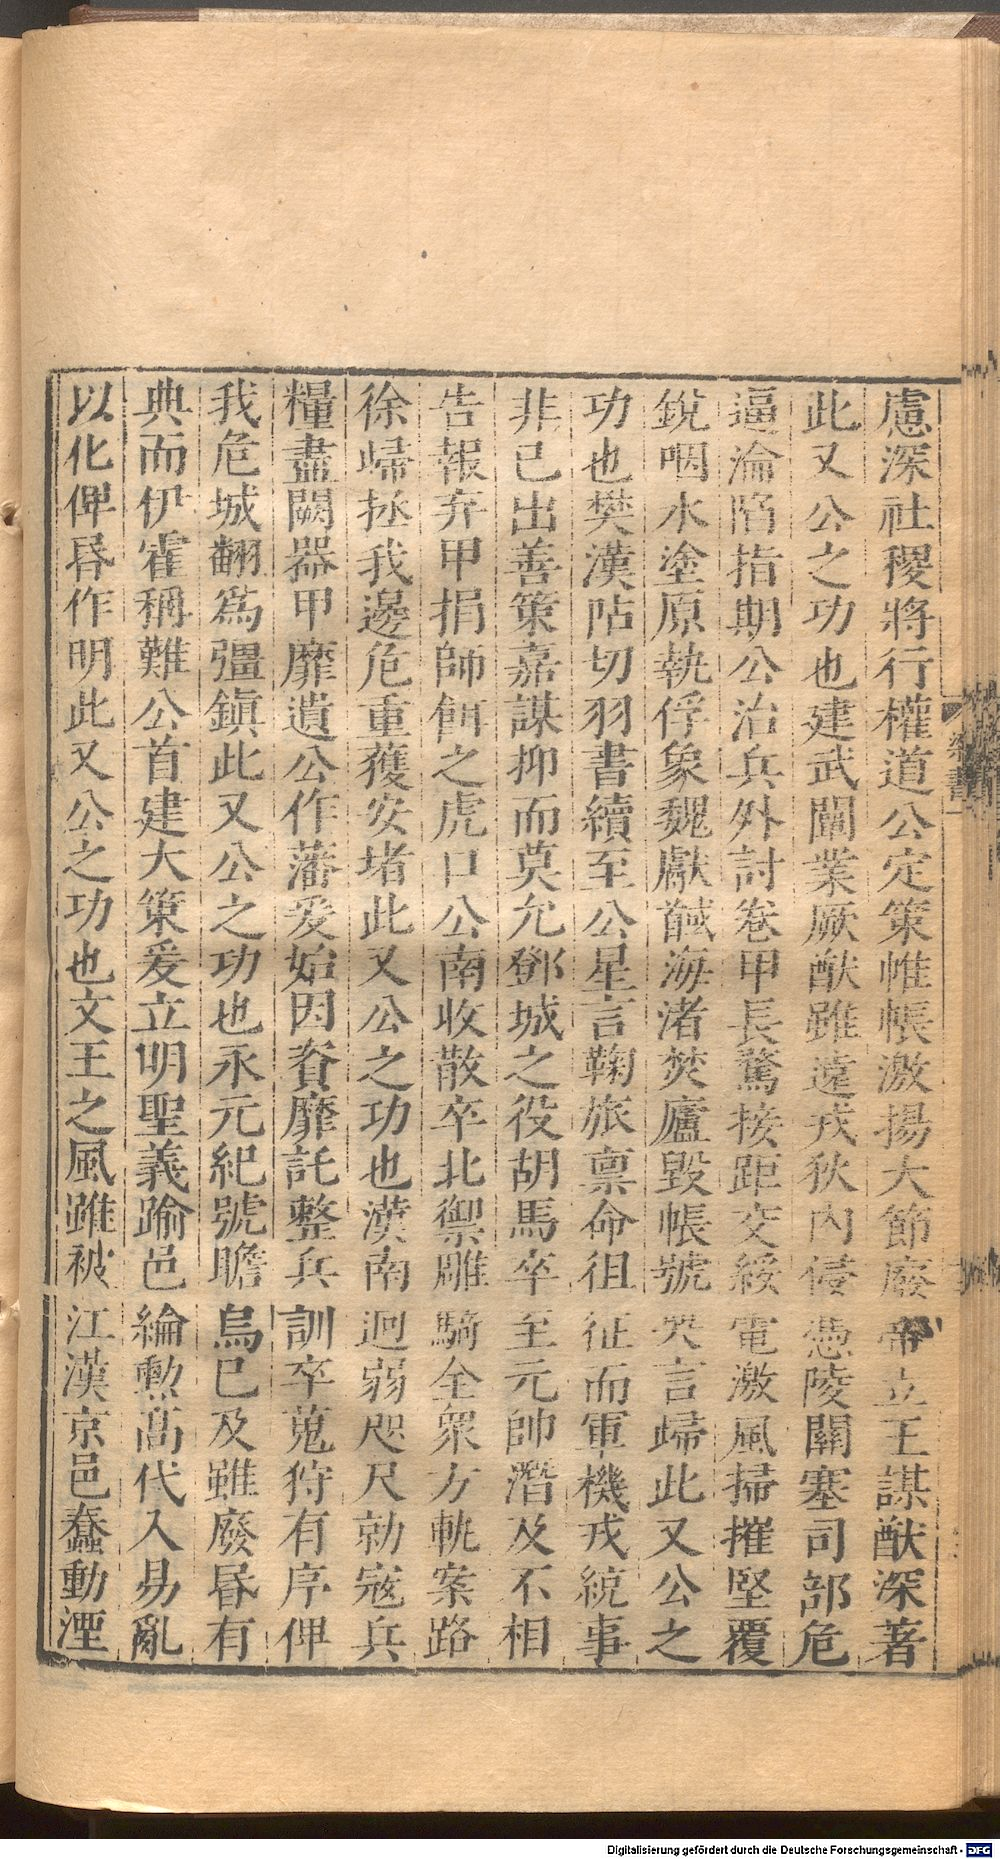 慮深社稷將行權道公定策帷帳激揚大節廢帝立王謀猷深著
此又公之功也建武闡業厥猷雖遠戎狄内侵憑陵關塞司部危
逼淪陷指期公治兵外討卷甲長騖接距交綏電激風掃摧堅覆
銳咽水塗原執俘象魏獻馘海渚焚廬毀帳號哭言歸此又公之
功也樊漢阽切羽書續至公星言鞠旅禀命徂征而軍機戎統事
非已出善策嘉謀抑而莫允鄧城之役胡馬卒至元帥潛及不相
告報弃甲捐師餌之虎口公南收散卒北禦雕騎全衆方軌案路
徐歸拯我邊危重獲安堵此又公之功也漢南迥弱咫尺勍寇兵
糧盡闕器甲靡遺公作藩爰始因資靡託整兵訓卒蒐狩有序俾
我危城翻爲彊鎮此又公之功也永元紀號瞻烏已及雖廢昬有
典而伊霍稱難公首建大策爰立明聖義踰邑綸勲髙代入易亂
以化俾昬作明此又公之功也文王之風雖被江漢京邑蠢動湮
Digitalisierung gefördert durch die Deutsche Forschungsgemeinschaft - DFG